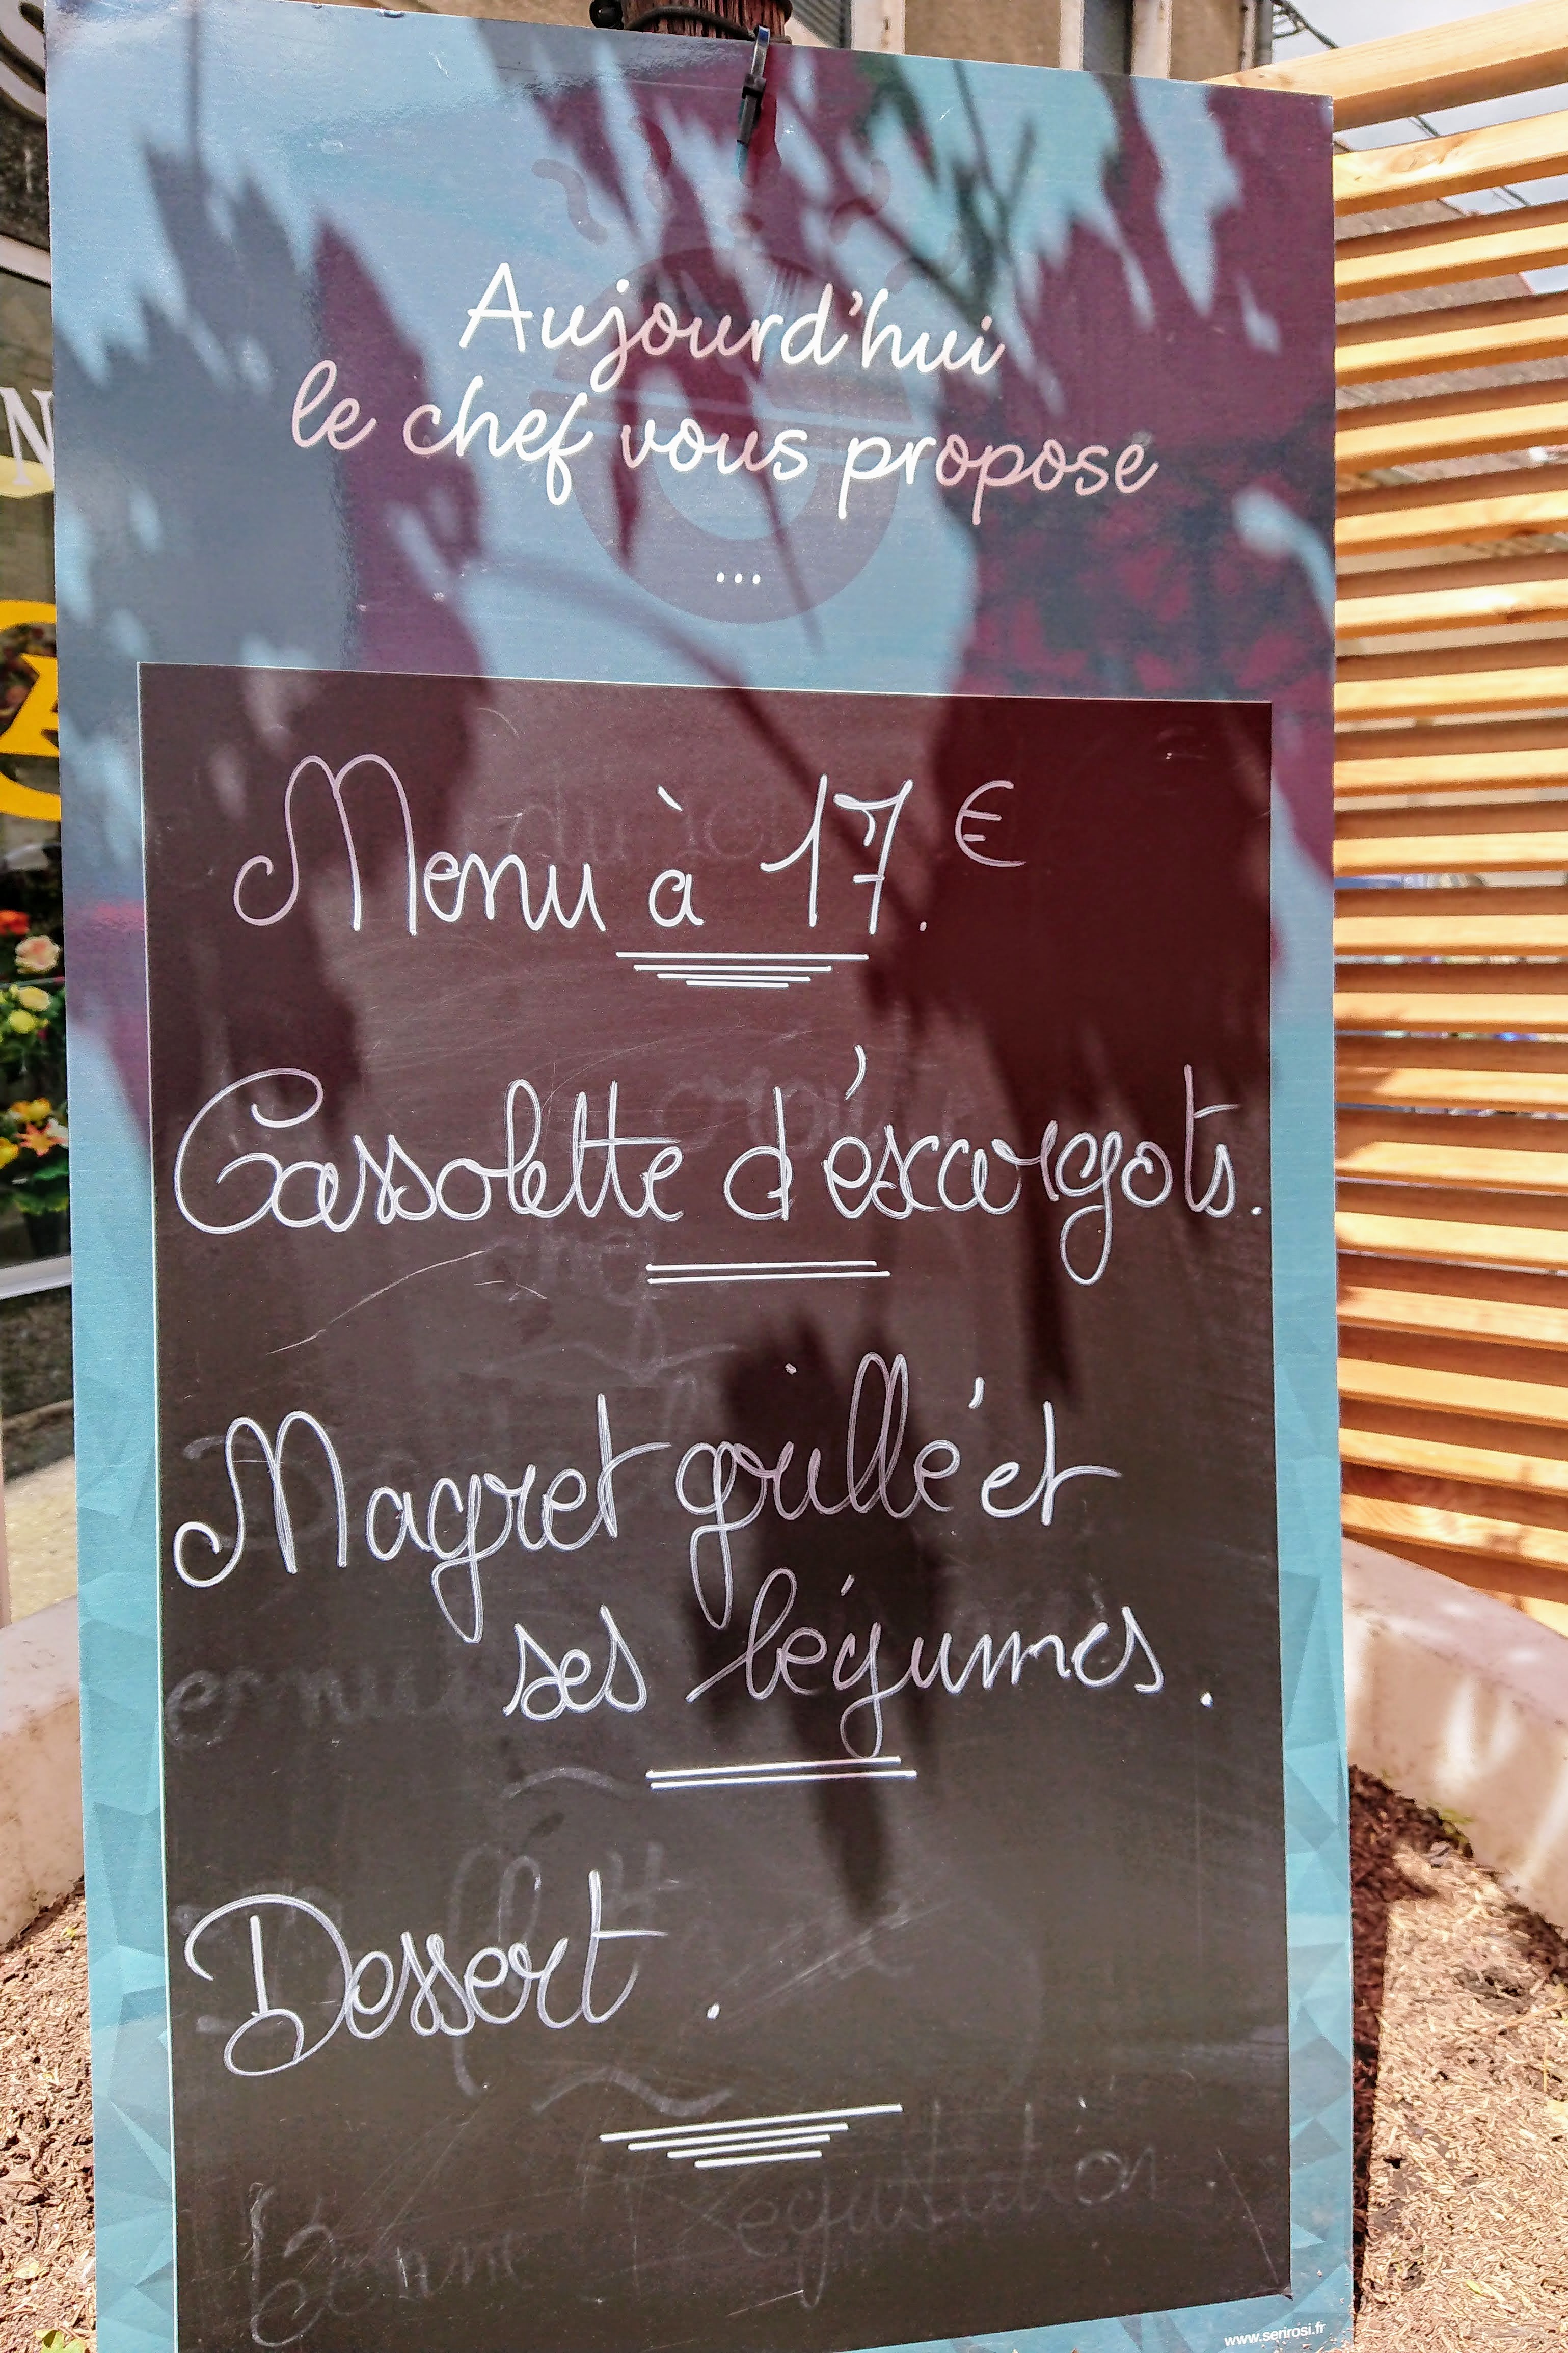 Aujourd'hui
le chef vous propose
...
Menu à 17.€
Cassolette d'éscargots.
Magret grillé et
ses légumes.
Dessert.
www.serirosi.fr